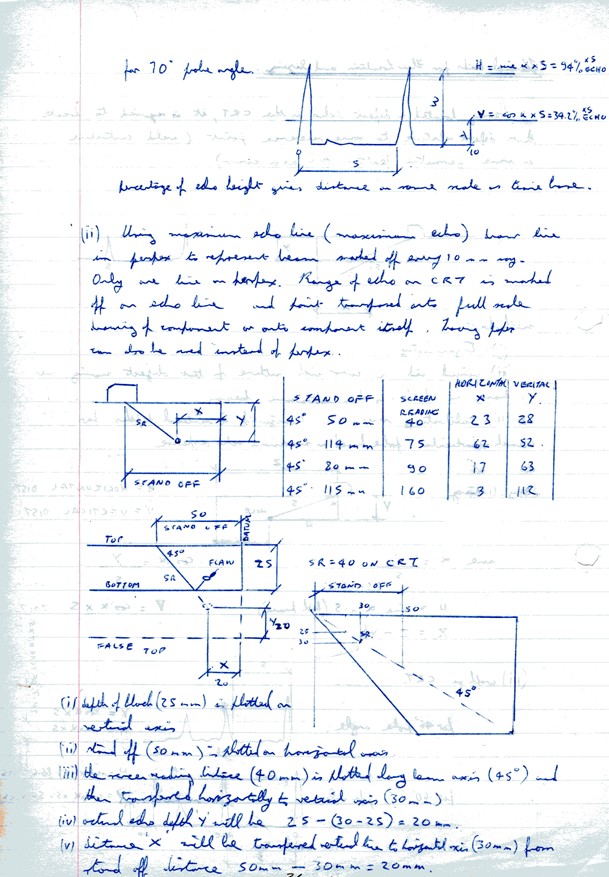 for 70° probe angle.
H = sine α x S = 94% x S ECHO
V = cos α x S = 34.2% x S ECHO
S
10
percentage of echo height gives distance on same scale as time base.
(ii) Using maximum echo line (maximum echo) draw line
in perspex to represent beam marked off every 10 mm say.
Only one line on perspex. Range of echo on CRT is marked
off on echo line and point transposed onto full scale
drawing of component or onto component itself. Tracing paper
can also be used instead of perspex.
SR
X
Y
STAND OFF
STAND OFF SCREEN READING HORIZONTAL X VERITAL Y.
45° 50 mm 40 23 28
45° 114 mm 75 62 52
45° 80 mm 90 17 63
45° 115 mm 160 3 112
50
STAND OFF
DATUM
TOP
45°
FLAW
25
SR
BOTTOM
Y 20
FALSE TOP
X
20
SR = 40 ON CRT
STAND OFF
30
50
25
30
SR
45°
(i) depth of block (25mm) is plotted on
vertical axis
(ii) stand off (50mm) is plotted on horizontal axis
(iii) the screen reading (40mm) is plotted along beam axis (45°) and
then transferred horizontally to vertical axis (30mm)
(iv) actual echo depth Y will be 25 - (30-25) = 20mm.
(v) distance 'X' will be transfered vertical line to horizontal axis (30mm) from
stand off distance 50mm - 30mm = 20mm.